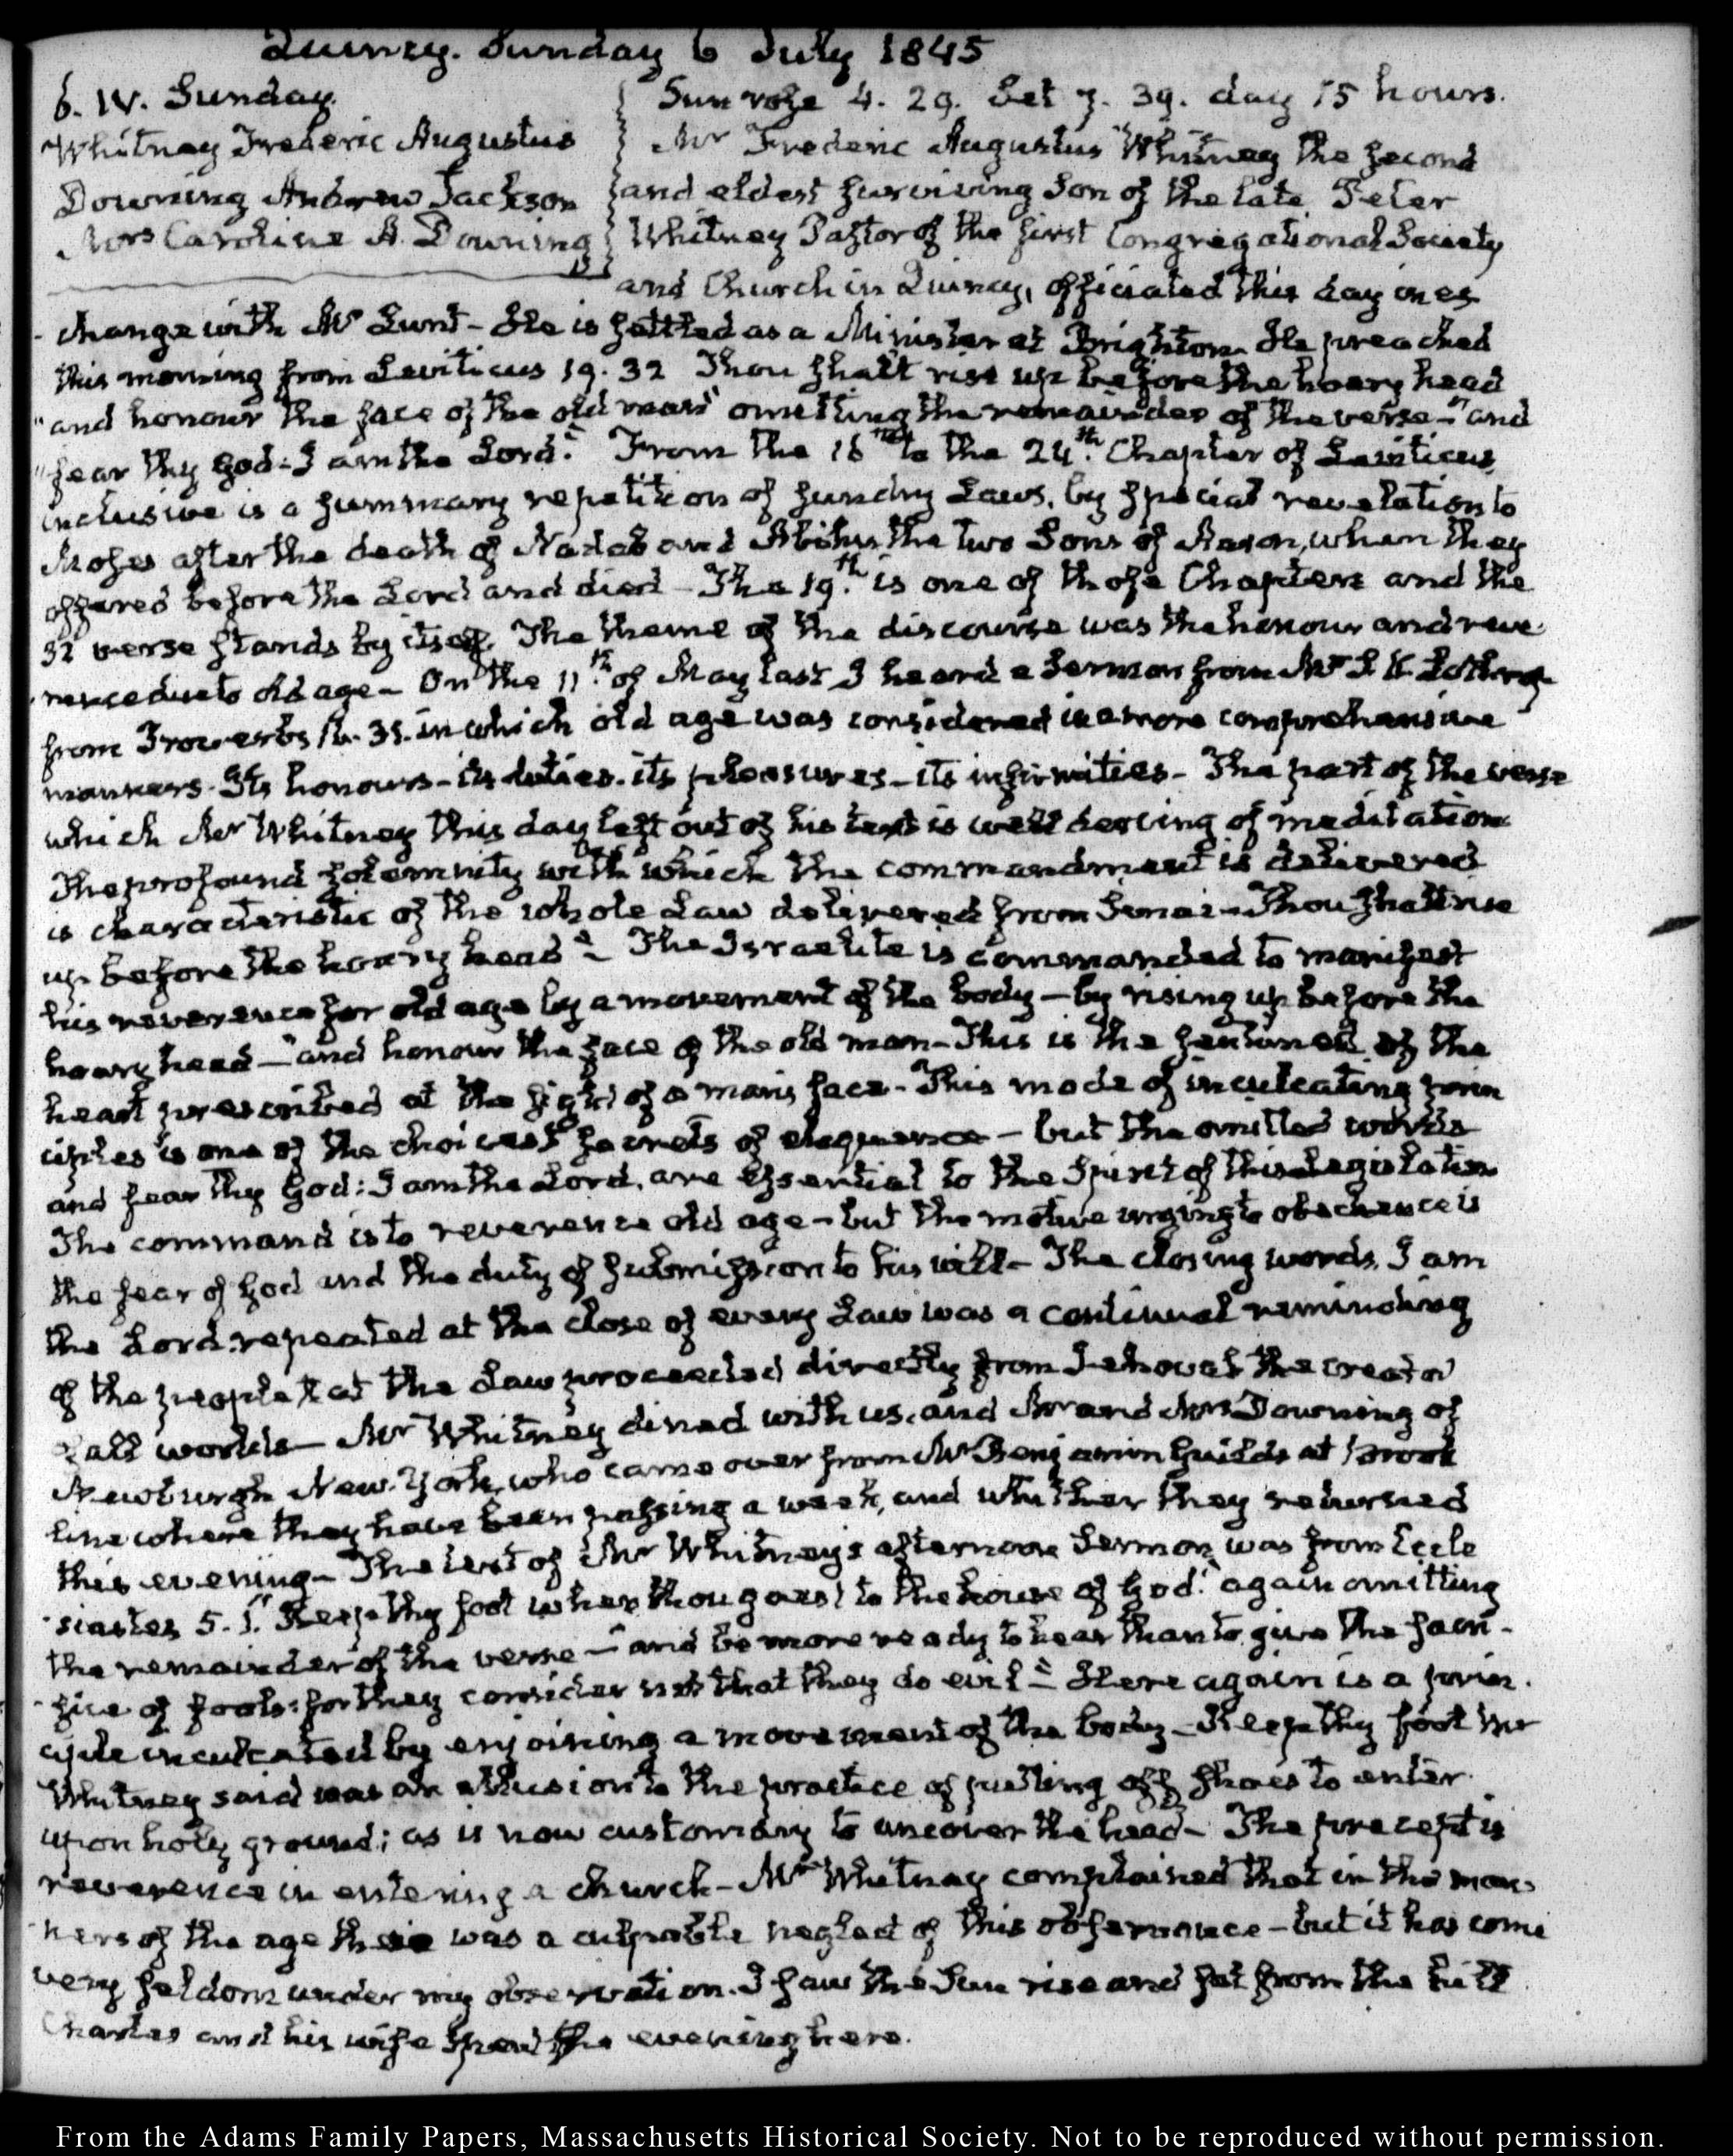 Quincy. Sunday 6 July 1845
6. IV. Sunday.
Whitney Frederic Augustus
Downing Andrew Jackson
Mrs Caroline A. Downing
Sun rose 4. 29. Set 7. 39. day 15 hours.
Mr Frederic Augustus Whitney the second
and eldest surviving Son of the late Peter
Whitney Pastor of the first Congregational Society
and Church in Quincy, officiated this day in ex
-change with Mr Lunt - He is settled as a Minister at Brighton. He preached
this morning from Leviticus 19. 32 Thou shalt rise up before the hoary head
"and honour the face of the old man" omitting the remainder of the verse - "and
"fear thy God - I am the Lord." From the 16th to the 24th Chapter of Leviticus,
inclusive is a summary repetition of sundry Laws, by special revelation to
Moses after the death of Nadab and Abihu, the two Sons of Aaron, when they
offered before the Lord and died - The 19th is one of those Chapters and the
32 verse stands by itself. The theme of the discourse was the honour and reve
-rence due to old age - On the 11th of May last I heard a Sermon from Mr S K Lothrop
from Proverbs 16. 31. in which old age was considered in a more comprehensive
manner. Its honours - its duties. its pleasures - its infirmities - The part of the verse
which Mr Whitney this day left out of his text is well deserving of meditation
The profound solemnity with which the commandment is delivered
is characteristic of the whole Law delivered from Sinai - Thou shalt rise
up before the hoary head" - The Israelite is commanded to manifest
his reverence for old age by a movement of the body - by rising up before the
hoary head - "and honour the face of the old man - This is the sentiment of the
heart prescribed at the sight of a man's face - This mode of inculcating prin
ciples is one of the choicest secrets of eloquence - but the omitted words
and fear thy God: I am the Lord, are essential to the Spirit of this Legislation
The command is to reverence old age - but the motive urging to obedience is
the fear of God and the duty of submission to his will - The closing words, I am
the Lord, repeated at the close of every Law was a continual reminding
of the people that the Law proceeded directly from Jehovah the creator
of all worlds - Mr Whitney dined with us, and Mr and Mrs Downing of
Newburgh New-York, who came over from Mr Benjamin Guilds at Brook
line where they have been passing a week, and whither they returned
this evening - The text of Mr Whitney's afternoon Sermon was from Eccle
-siastes 5. 1. "Keep thy foot when thou goest to the house of God." again omitting
the remainder of the verse - "and be more ready to hear than to give the sacri-
-fice of fools: for they consider not that they do evil" - Here again is a prin-
ciple inculcated by enjoining a movement of the body - Keep thy foot Mr
Whitney said was an allusion to the practice of putting off shoes to enter
upon holy ground; as is now customary to uncover the head - The precept is
reverence in entering a church - Mr Whitney complained that in the man-
-ners of the age there was a culpable neglect of this observance - but it has come
very seldom under my observation. I saw the Sun rise and set from the hill
Charles and his wife spent the evening here.
From the Adams Family Papers, Massachusetts Historical Society. Not to be reproduced without permission.